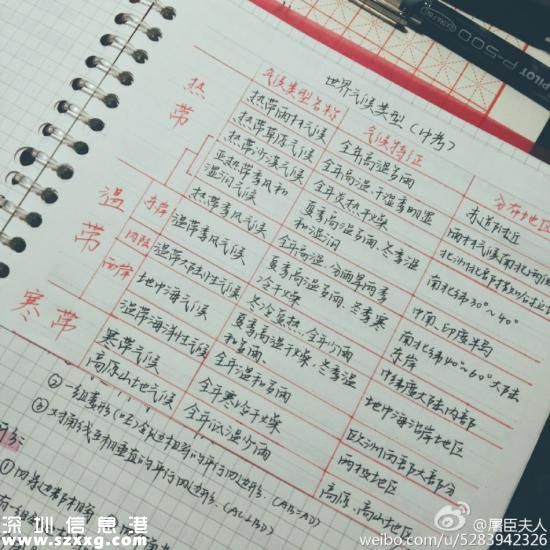 世界气候类型(中考)
气候类型名称 气候特征 分布地区
热带
热带雨林气候 全年高温多雨 赤道附近
热带草原气候 全年高温,干湿季明显
热带沙漠气候 全年炎热干燥
亚热带季风和湿润气候 夏季高温多雨,冬季温和湿润 南北纬30°~40°
热带季风气候 全年高温,分雨旱两季 中南、印度半岛
温带
东岸 温带季风气候 夏季高温多雨,冬季寒冷干燥 南北纬40°~60°大陆东岸
内陆 温带大陆性气候 冬冷夏热,全年少雨 中纬度大陆内部
西岸 地中海气候 夏季高温干燥,冬季温和多雨 地中海沿岸地区
温带海洋性气候 全年温和多雨 欧洲西部大部分
寒带
寒带气候 全年寒冷干燥 两极地区
高原山地气候 全年低温少雨 高原、高山地区
②一组
③对角线互相垂直的平行四边形.(AC⊥BD)
深圳信息港
www.szxxg.com
PILOT P-500
@屠臣夫人
weibo.com/u/5283942326